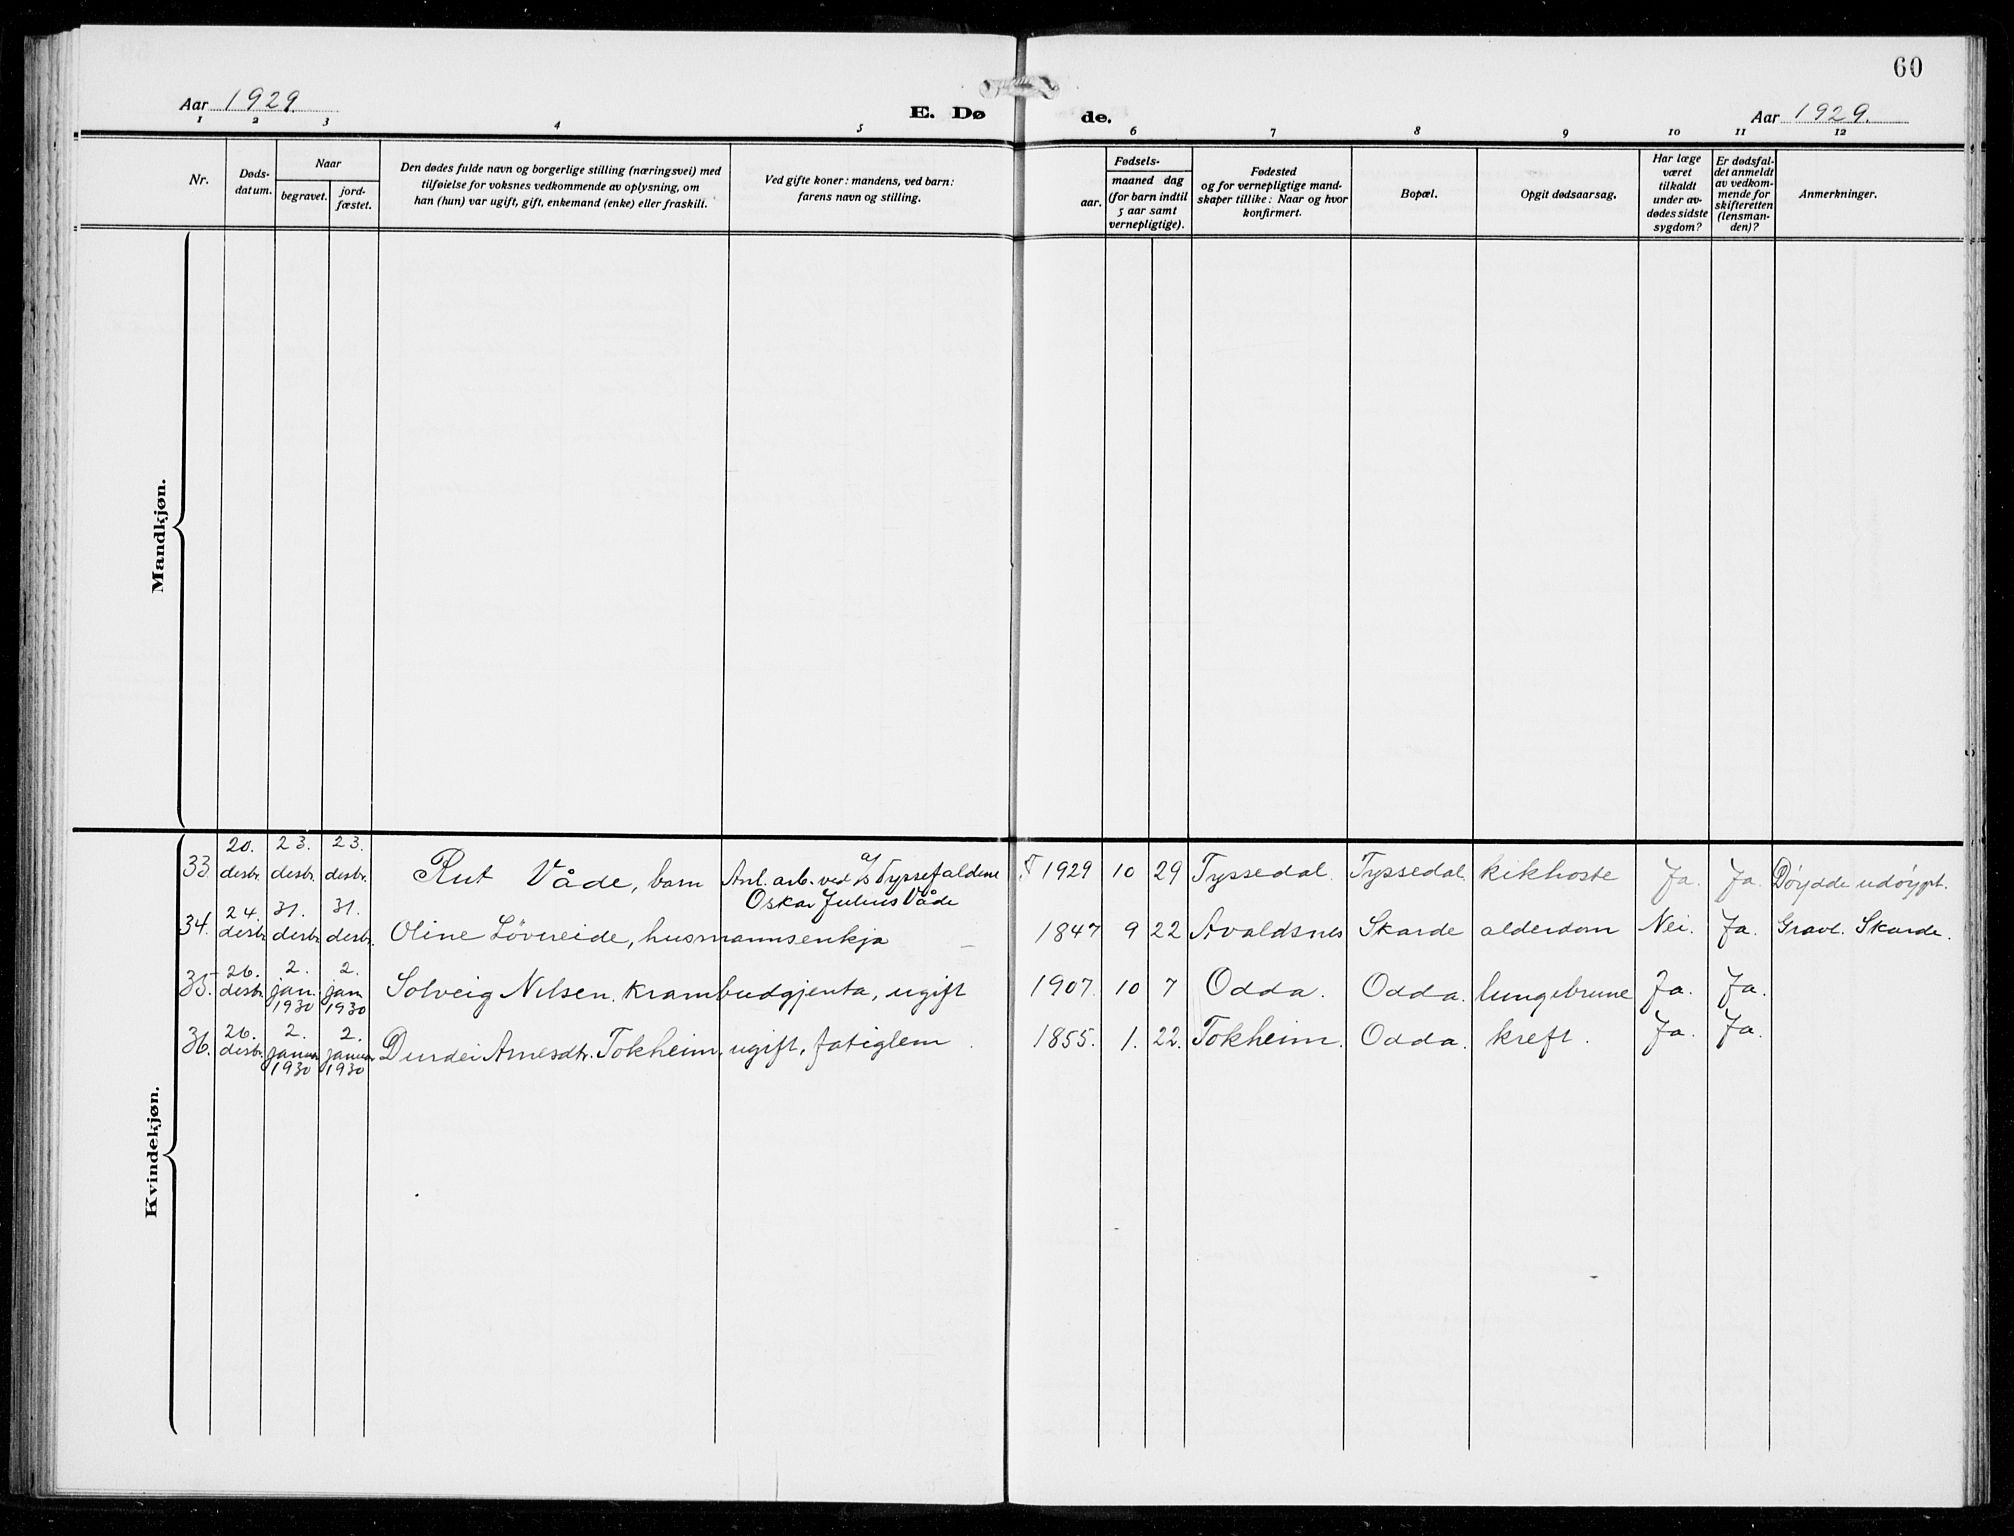 60
Aar 1929.
E. Dø de.
Aar 1929.
1 2 3 4 5 6 7 8 9 10 11 12
Nr.
Døds-
datum.
Naar
begravet.
jord-
fæstet.
Den dødes fulde navn og borgerlige stilling (næringsvei) med
tilføielse for voksnes vedkommende av oplysning, om
han (hun) var ugift, gift, enkemand (enke) eller fraskilt.
Ved gifte koner: mandens, ved barn:
farens navn og stilling.
Fødsels-
aar.
maaned dag
(for barn indtil
5 aar samt
vernepligtige).
Fødested
og for vernepligtige mand-
skaper tillike: Naar og hvor
konfirmert.
Bopæl.
Opgit dødsaarsag.
Har læge
været
tilkaldt
under av-
dødes sidste
sygdom?
Er dødsfal-
det anmeldt
av vedkom-
mende for
skifteretten
(lensman-
den)?
Anmerkninger.
Mandkjøn.
Kvindekjøn.
20. 23. 23.
33 desbr. desbr. desbr. Rut Våde, barn Anl. arb. ved a/s Tyssefaldene 1929 10 29 Tyssedal. Tyssedal. kikhoste Ja. Ja. Døydde udøypt.
Oskar Julius Våde
24. 31. 31.
34. desbr. desbr. desbr. Oline Løvreide, husmannsenkja – 1847 9 22 Avaldsnes Skarde alderdom Nei. Ja. Gravl. Skarde.
26. 2. 2.
35. desbr. jan. jan. Solveig Nilsen, krambudgjenta, ugift 1907. 10 7 Odda. Odda. lungebrune Ja. Ja.
1930 1930
26. 2. 2.
36. desbr. januar januar Durdei Arnesdtr. Tokheim, ugift, fatiglem. 1855. 1. 22. Tokheim. Odda. kreft. Ja. Ja.
1930 1930